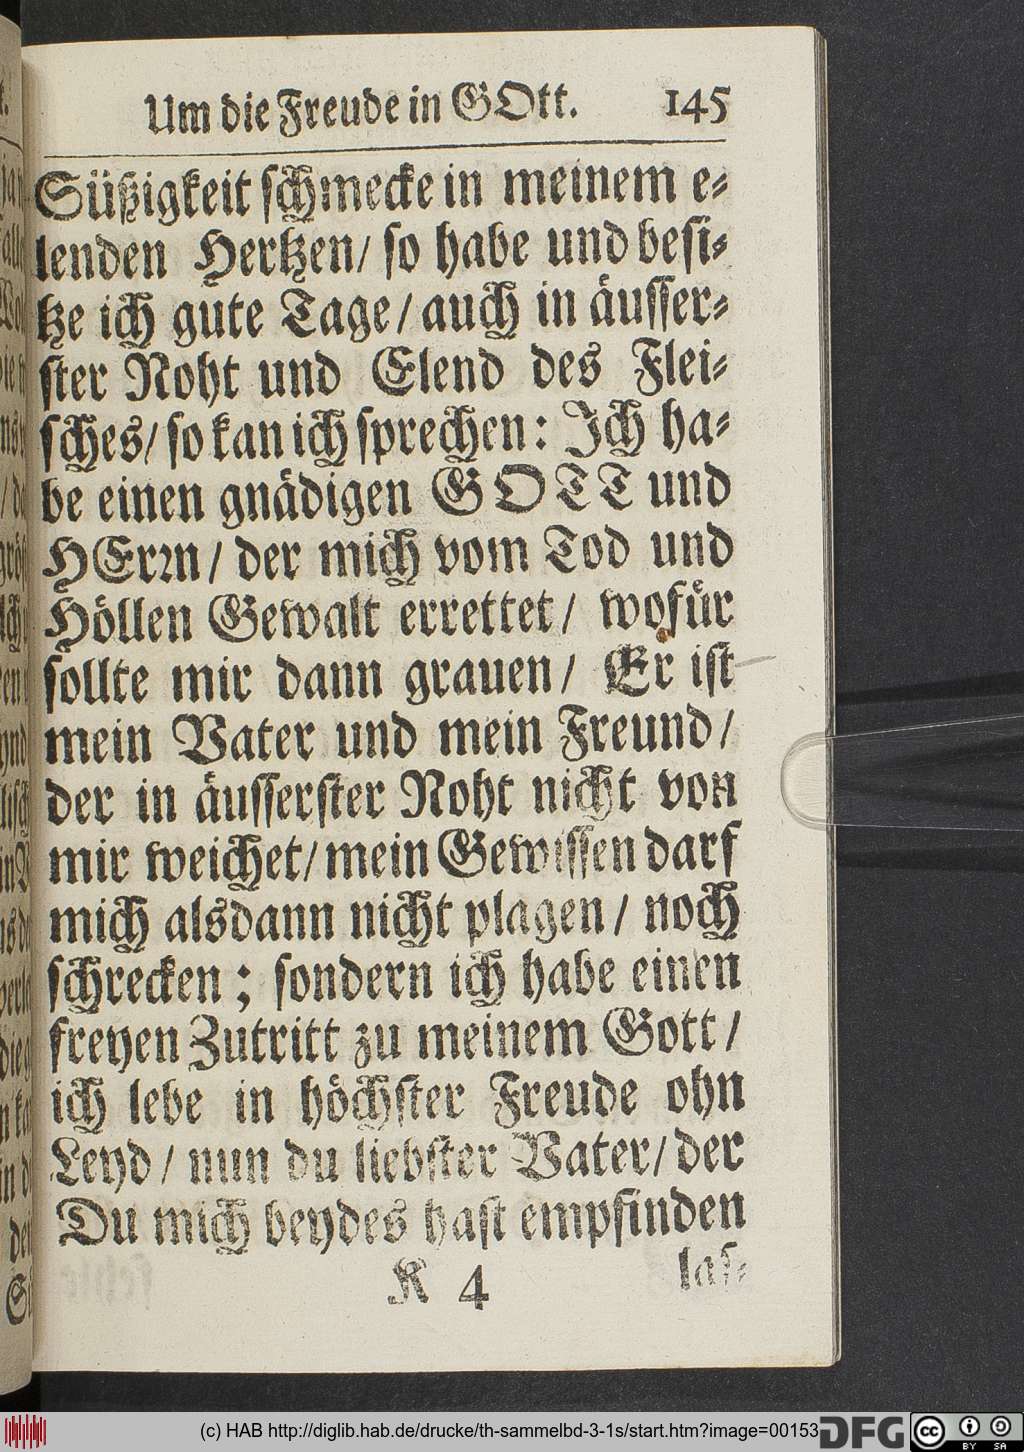 Um die Freude in GOtt. 145
Süßigkeit schmecke in meinem e-
lenden Hertzen/ so habe und besi-
tze ich gute Tage/ auch in äusser-
ster Noht und Elend des Flei-
sches/ so kan ich sprechen: Ich ha-
be einen gnädigen GOTT und
HErꝛn/ der mich vom Tod und
Höllen Gewalt errettet/ wofür
sollte mir dann grauen/ Er ist
mein Vater und mein Freund/
der in äusserster Noht nicht von
mir weichet/ mein Gewissen darf
mich alsdann nicht plagen/ noch
schrecken; sondern ich habe einen
freyen Zutritt zu meinem Gott/
ich lebe in höchster Freude ohn
Leyd/ nun du liebster Vater/ der
Du mich beydes hast empfinden
K 4 las-
(c) HAB http://diglib.hab.de/drucke/th-sammelbd-3-1s/start.htm?image=00153
DFG cc BY SA